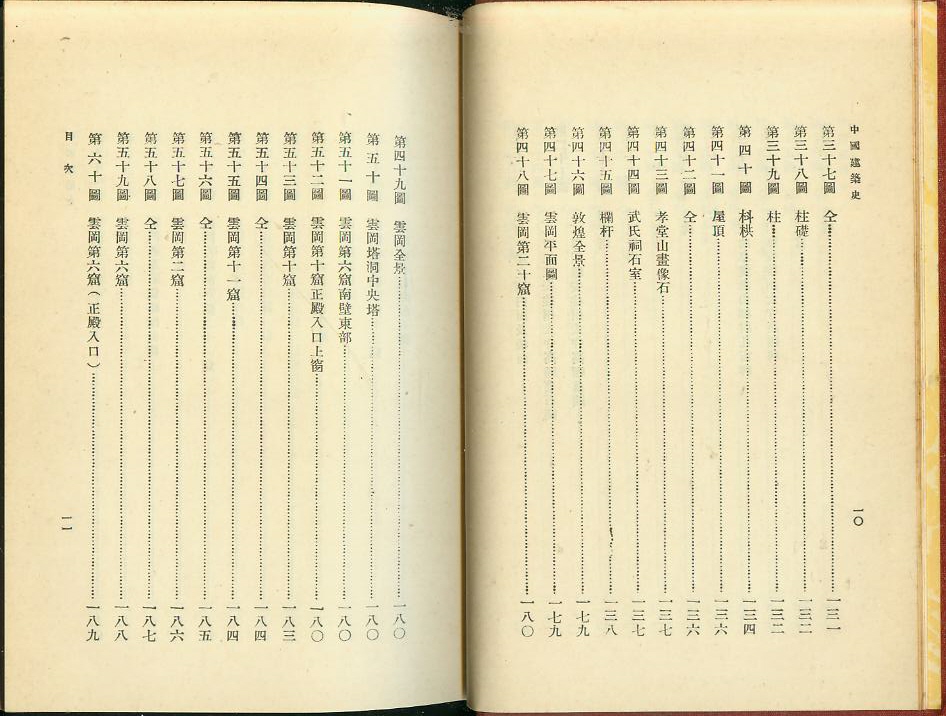 中國建築史
一〇
第三十七圖 仝……一三一
第三十八圖 柱礎……一三二
第三十九圖 柱……一三二
第四十圖 枓栱……一三四
第四十一圖 屋頂……一三六
第四十二圖 仝……一三六
第四十三圖 孝堂山畫像石……一三七
第四十四圖 武氏祠石室……一三七
第四十五圖 欄杆……一三八
第四十六圖 敦煌全景……一七九
第四十七圖 雲岡平面圖……一七九
第四十八圖 雲岡第二十窟……一八〇
第四十九圖 雲岡全景……一八〇
第五十圖 雲岡塔洞中央塔……一八〇
第五十一圖 雲岡第六窟南壁東部……一八〇
第五十二圖 雲岡第十窟正殿入口上窗……一八〇
第五十三圖 雲岡第十窟……一八三
第五十四圖 仝……一八四
第五十五圖 雲岡第十一窟……一八四
第五十六圖 仝……一八五
第五十七圖 雲岡第二窟……一八六
第五十八圖 仝……一八七
第五十九圖 雲岡第六窟……一八八
第六十圖 雲岡第六窟（正殿入口）……一八九
目次
一一